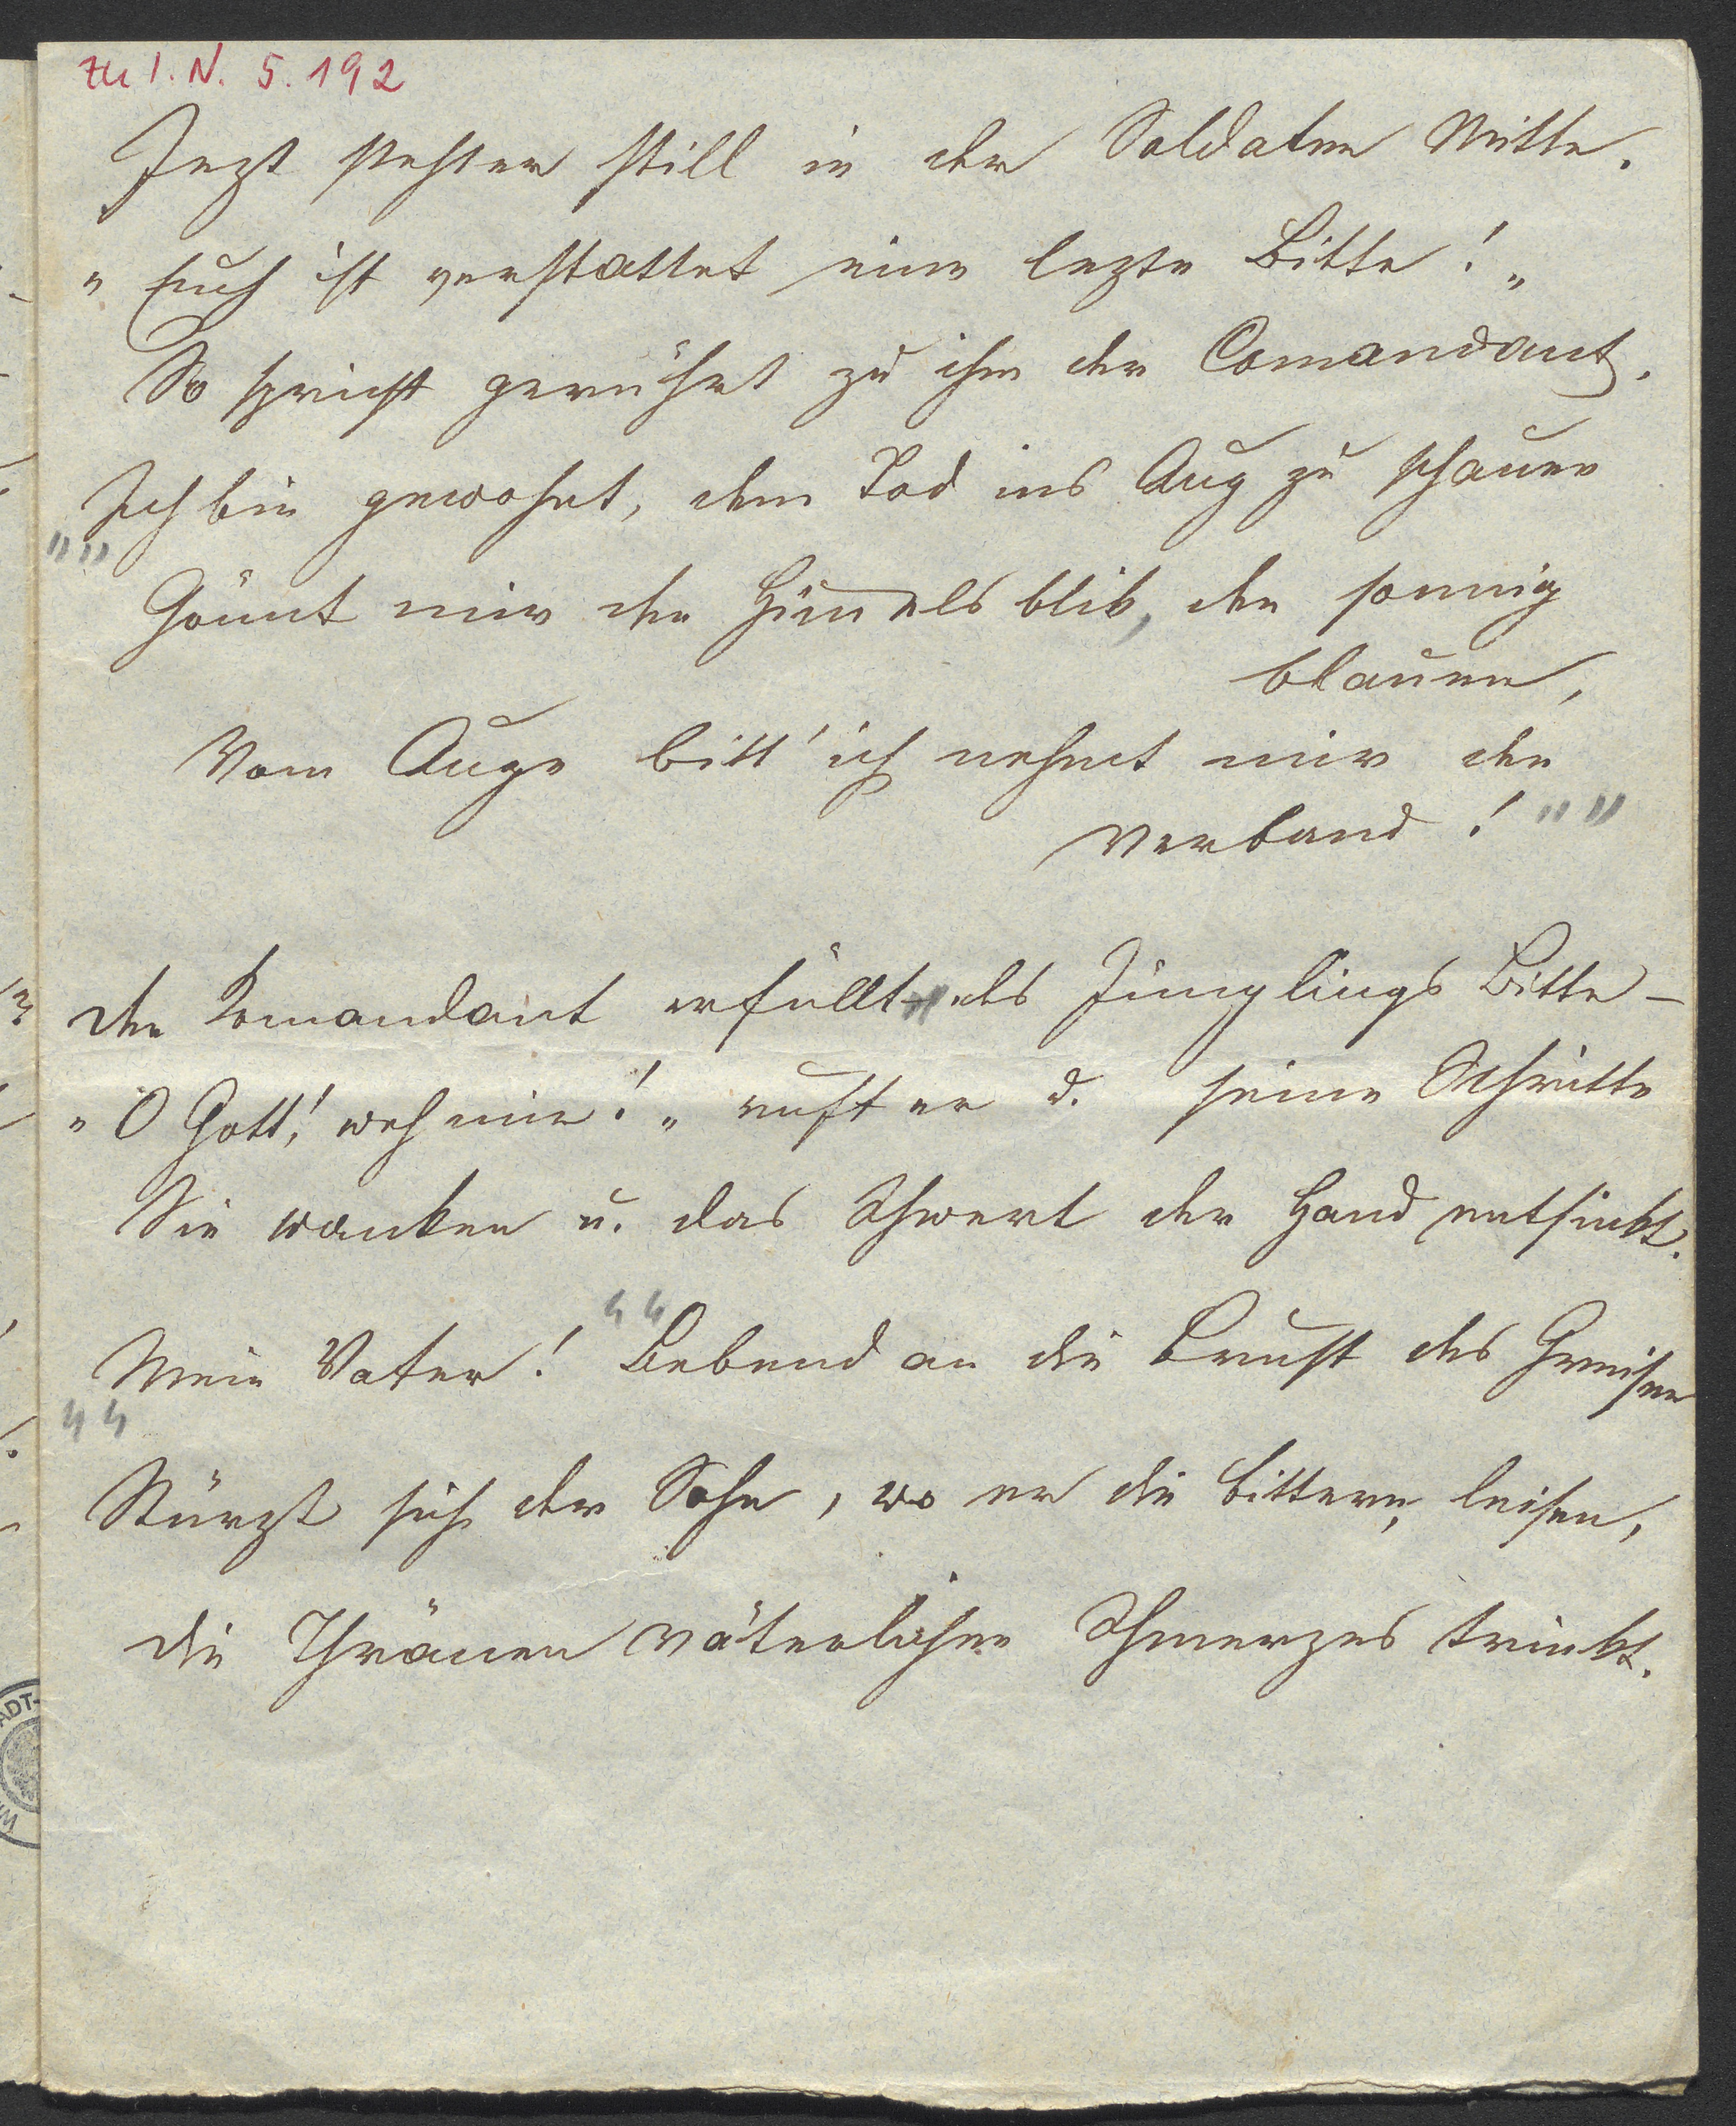 zu I.N. 5.192
Jezt steht er still in der Soldaten Mitte.
„Euch ist verstattet eine lezte Bitte!„
So spricht gerührt zu ihm der Comandant.
Ich bin gewohnt, dem Tod ins Aug zu schauen
""
Gönnt mir den Himelsblik, den sonnig
blauen,
Vom Auge bitt' ich nehmt mir den
Verband! ""
Der Komandant erfüllt des Jünglings Bitte –
„O Gott! weh mir!„ ruft er u. seine Schritte
Sie wanken u. das Schwert der Hand entsinkt.
Mein Vater! "" Bebend an die Brust des Greisen
""
Stürzt sich der Sohn, wo er die bittern, leisen,
Die Thränen väterlichen Schmerzes trinkt.
ADT-